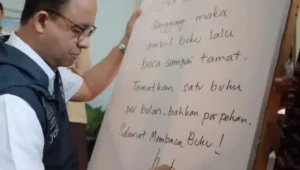 Sanggung maka
ambil buku lalu
baca sampai tamat.
Tamatkan satu buku
per bulan, bahkan per pekan.
Selamat Membaca Buku!